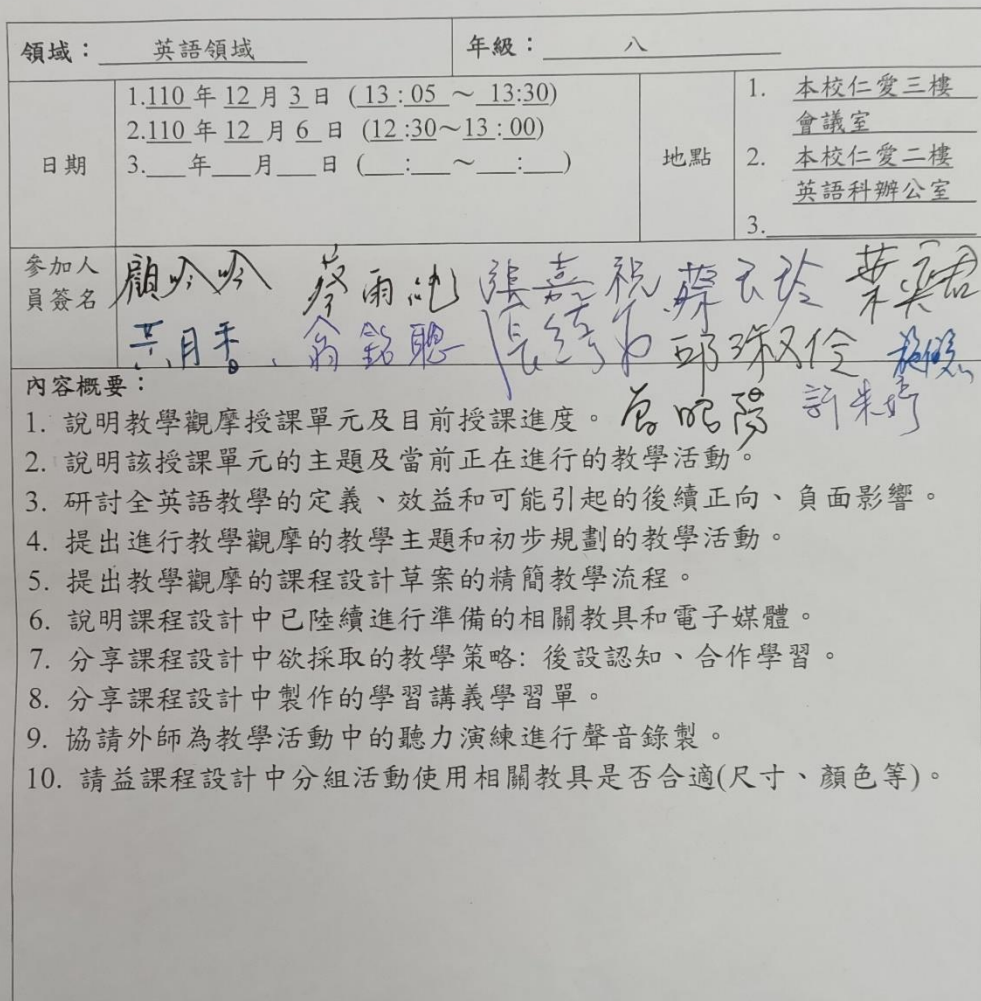 領域： 英語領域 年級： 八
日期
1.110 年 12 月 3 日 ( 13 : 05 ～ 13:30)
2.110 年 12 月 6 日 (12 :30～13 : 00)
3.___年___月___日 (___:___ ～ ___:___)
地點
1. 本校仁愛三樓
會議室
2. 本校仁愛二樓
英語科辦公室
3.
參加人
員簽名
顧吟吟 蔡雨 張嘉祝 蔡玉玲 葉
黃月香 翁銘聰 張 邱淑伶
內容概要：
1. 說明教學觀摩授課單元及目前授課進度。
2. 說明該授課單元的主題及當前正在進行的教學活動。
3. 研討全英語教學的定義、效益和可能引起的後續正向、負面影響。
4. 提出進行教學觀摩的教學主題和初步規劃的教學活動。
5. 提出教學觀摩的課程設計草案的精簡教學流程。
6. 說明課程設計中已陸續進行準備的相關教具和電子媒體。
7. 分享課程設計中欲採取的教學策略: 後設認知、合作學習。
8. 分享課程設計中製作的學習講義學習單。
9. 協請外師為教學活動中的聽力演練進行聲音錄製。
10. 請益課程設計中分組活動使用相關教具是否合適(尺寸、顏色等)。